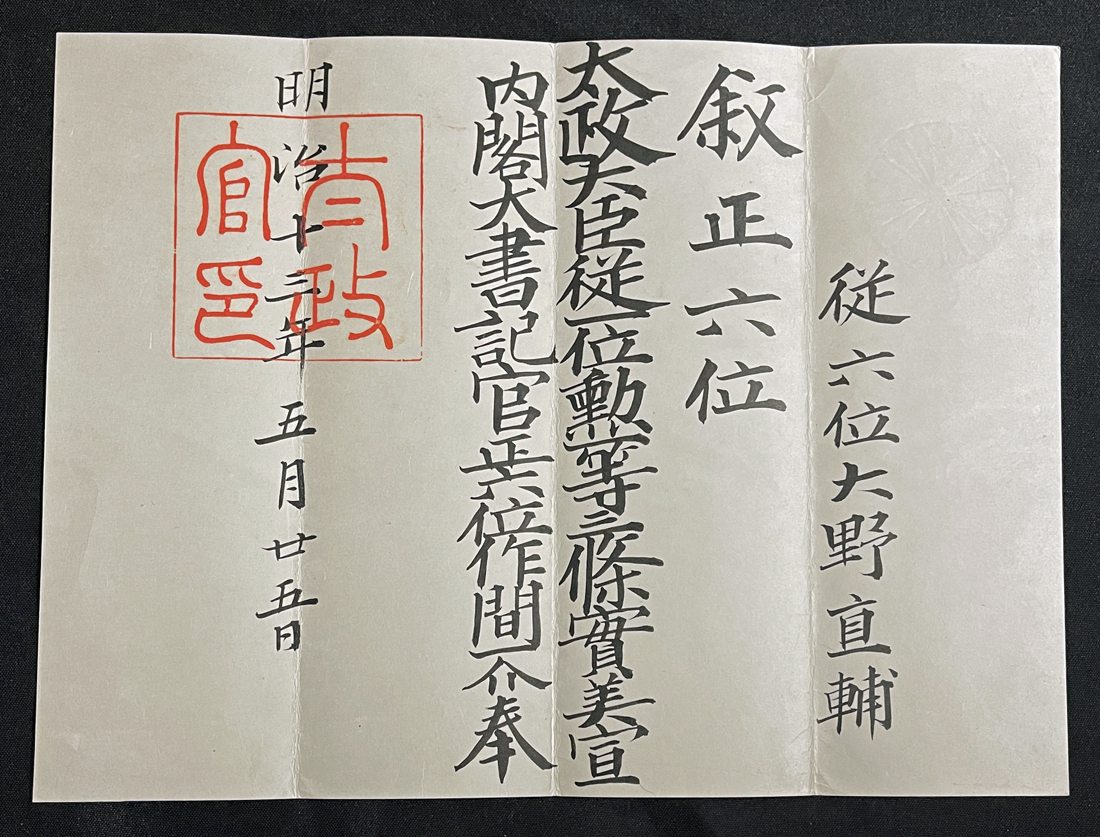 従六位大野直輔
叙正六位
太政大臣従一位勲一等三條實美宣
内閣大書記官正六位作間一介奉
明治十三年五月廿五日
太政官印